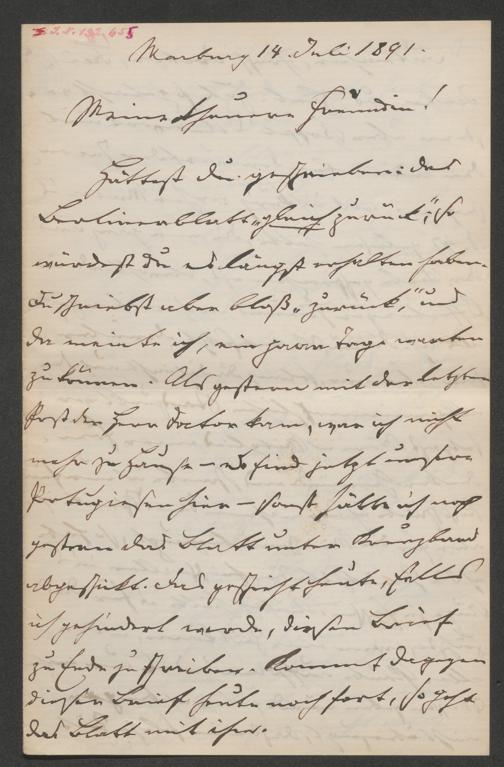 I.N. 132.655
Marburg 14. Juli 1891.
Meine theuere Freundin!
Hättest du geschrieben: das
Berlinerblatt „gleich zurück“, so
würdest du es längst erhalten haben.
Du schriebst aber bloß „zurück“, und
da meinte ich, ein paar Tage warten
zu können. Als gestern mit der letzten
Post der Herr Doctor kam, war ich nicht
mehr zu Hause – es sind jetzt unsere
Portugiesen hier – sonst hätte ich noch
gestern das Blatt unter Kreuzband
abgeschickt. Das geschieht heute, falls
ich gehindert werde, diesen Brief
zu Ende zu schreiben. Kommt dagegen
dieser Brief heute noch fort, so geht
das Blatt mit ihm.